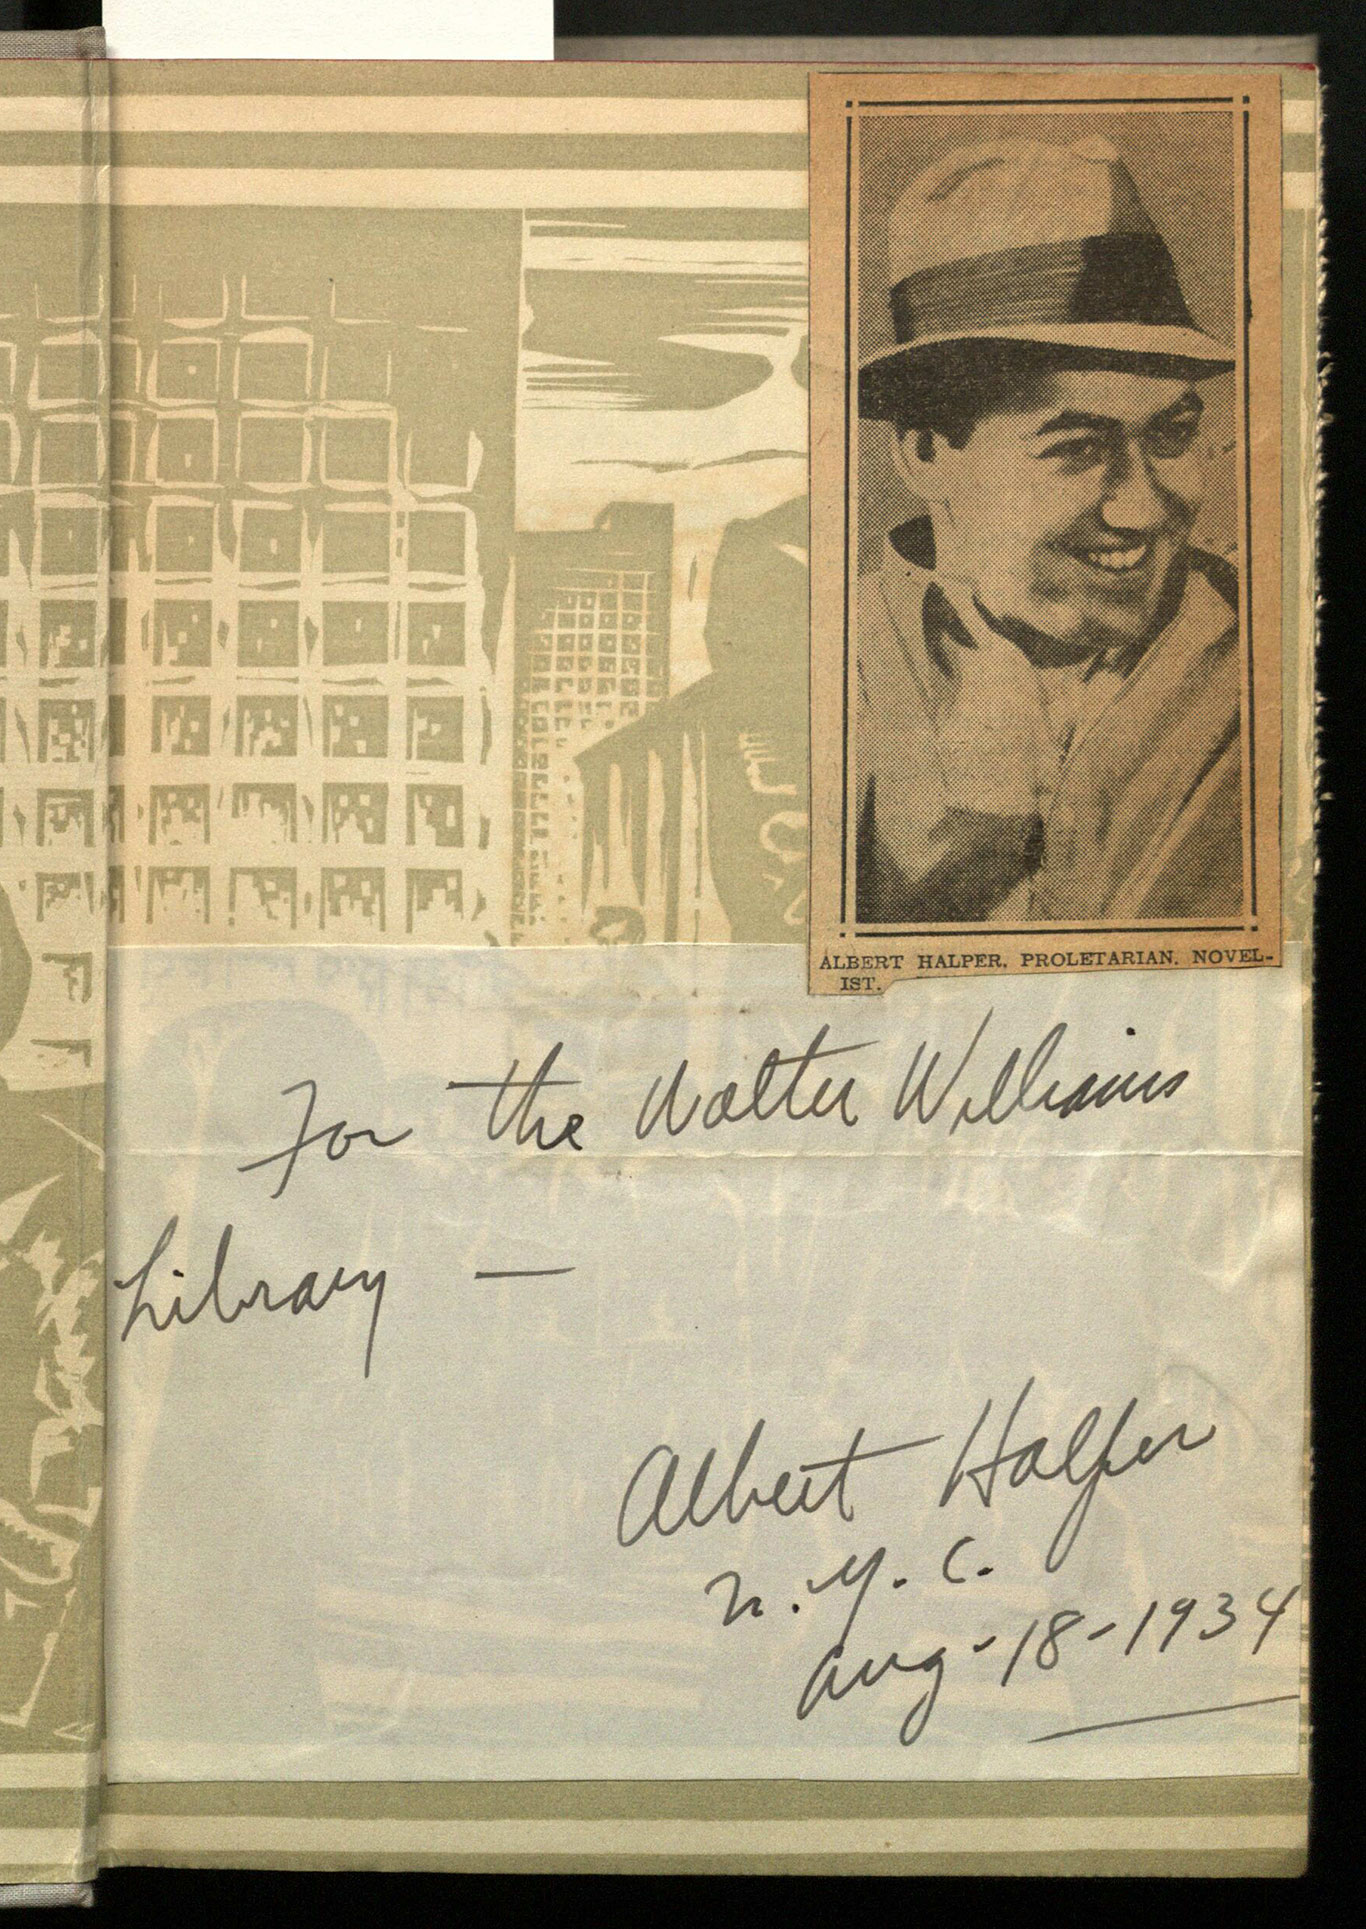 ALBERT HALPER, PROLETARIAN, NOVEL-
IST.
For the Walter Williams
Library —
Albert Halper
N.Y.C.
Aug-18-1934